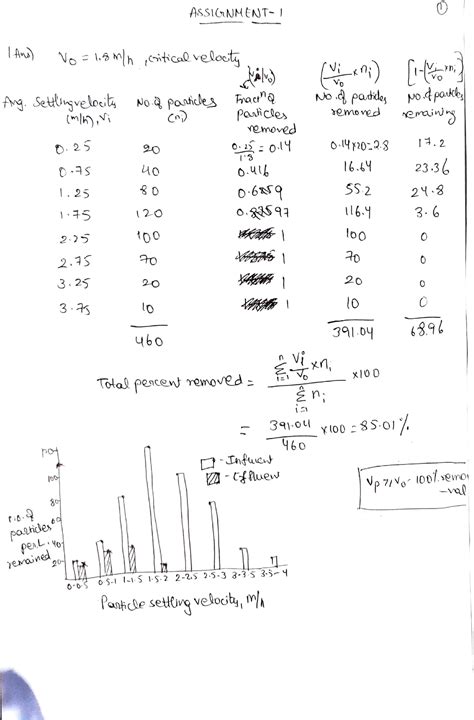 ASSIGNMENT-1
1
1 Ans) V₀ = 1.8 m/h , critical velocity
Avg. Settling velocity (m/h), Vi
No. of particles (ni)
(Vi/V₀) Fracⁿ of particles removed
(Vi/V₀ × ni) No. of particles removed
[1-(Vi/V₀ × ni)] No. of particles remaining
0.25 20 0.25/1.8 = 0.14 0.14×20=2.8 17.2
0.75 40 0.416 16.64 23.36
1.25 80 55.2 24.8
1.75 120 0.97 116.4 3.6
2.25 100 1 100 0
2.75 70 1 70 0
3.25 20 1 20 0
3.75 10 1 10 0
460 391.04 68.96
Total percent removed = Σ i=1 n Vi/V₀ × ni / Σ i=1 n ni × 100
= 391.04/460 × 100 = 85.01%
Influent
Effluent
Vp ≥ V₀ - 100% remo-val
no. of particles per L. remained
100
80
60
40
20
0-0.5 0.5-1 1-1.5 1.5-2 2-2.5 2.5-3 3-3.5 3.5-4
Particle settling velocity, m/h